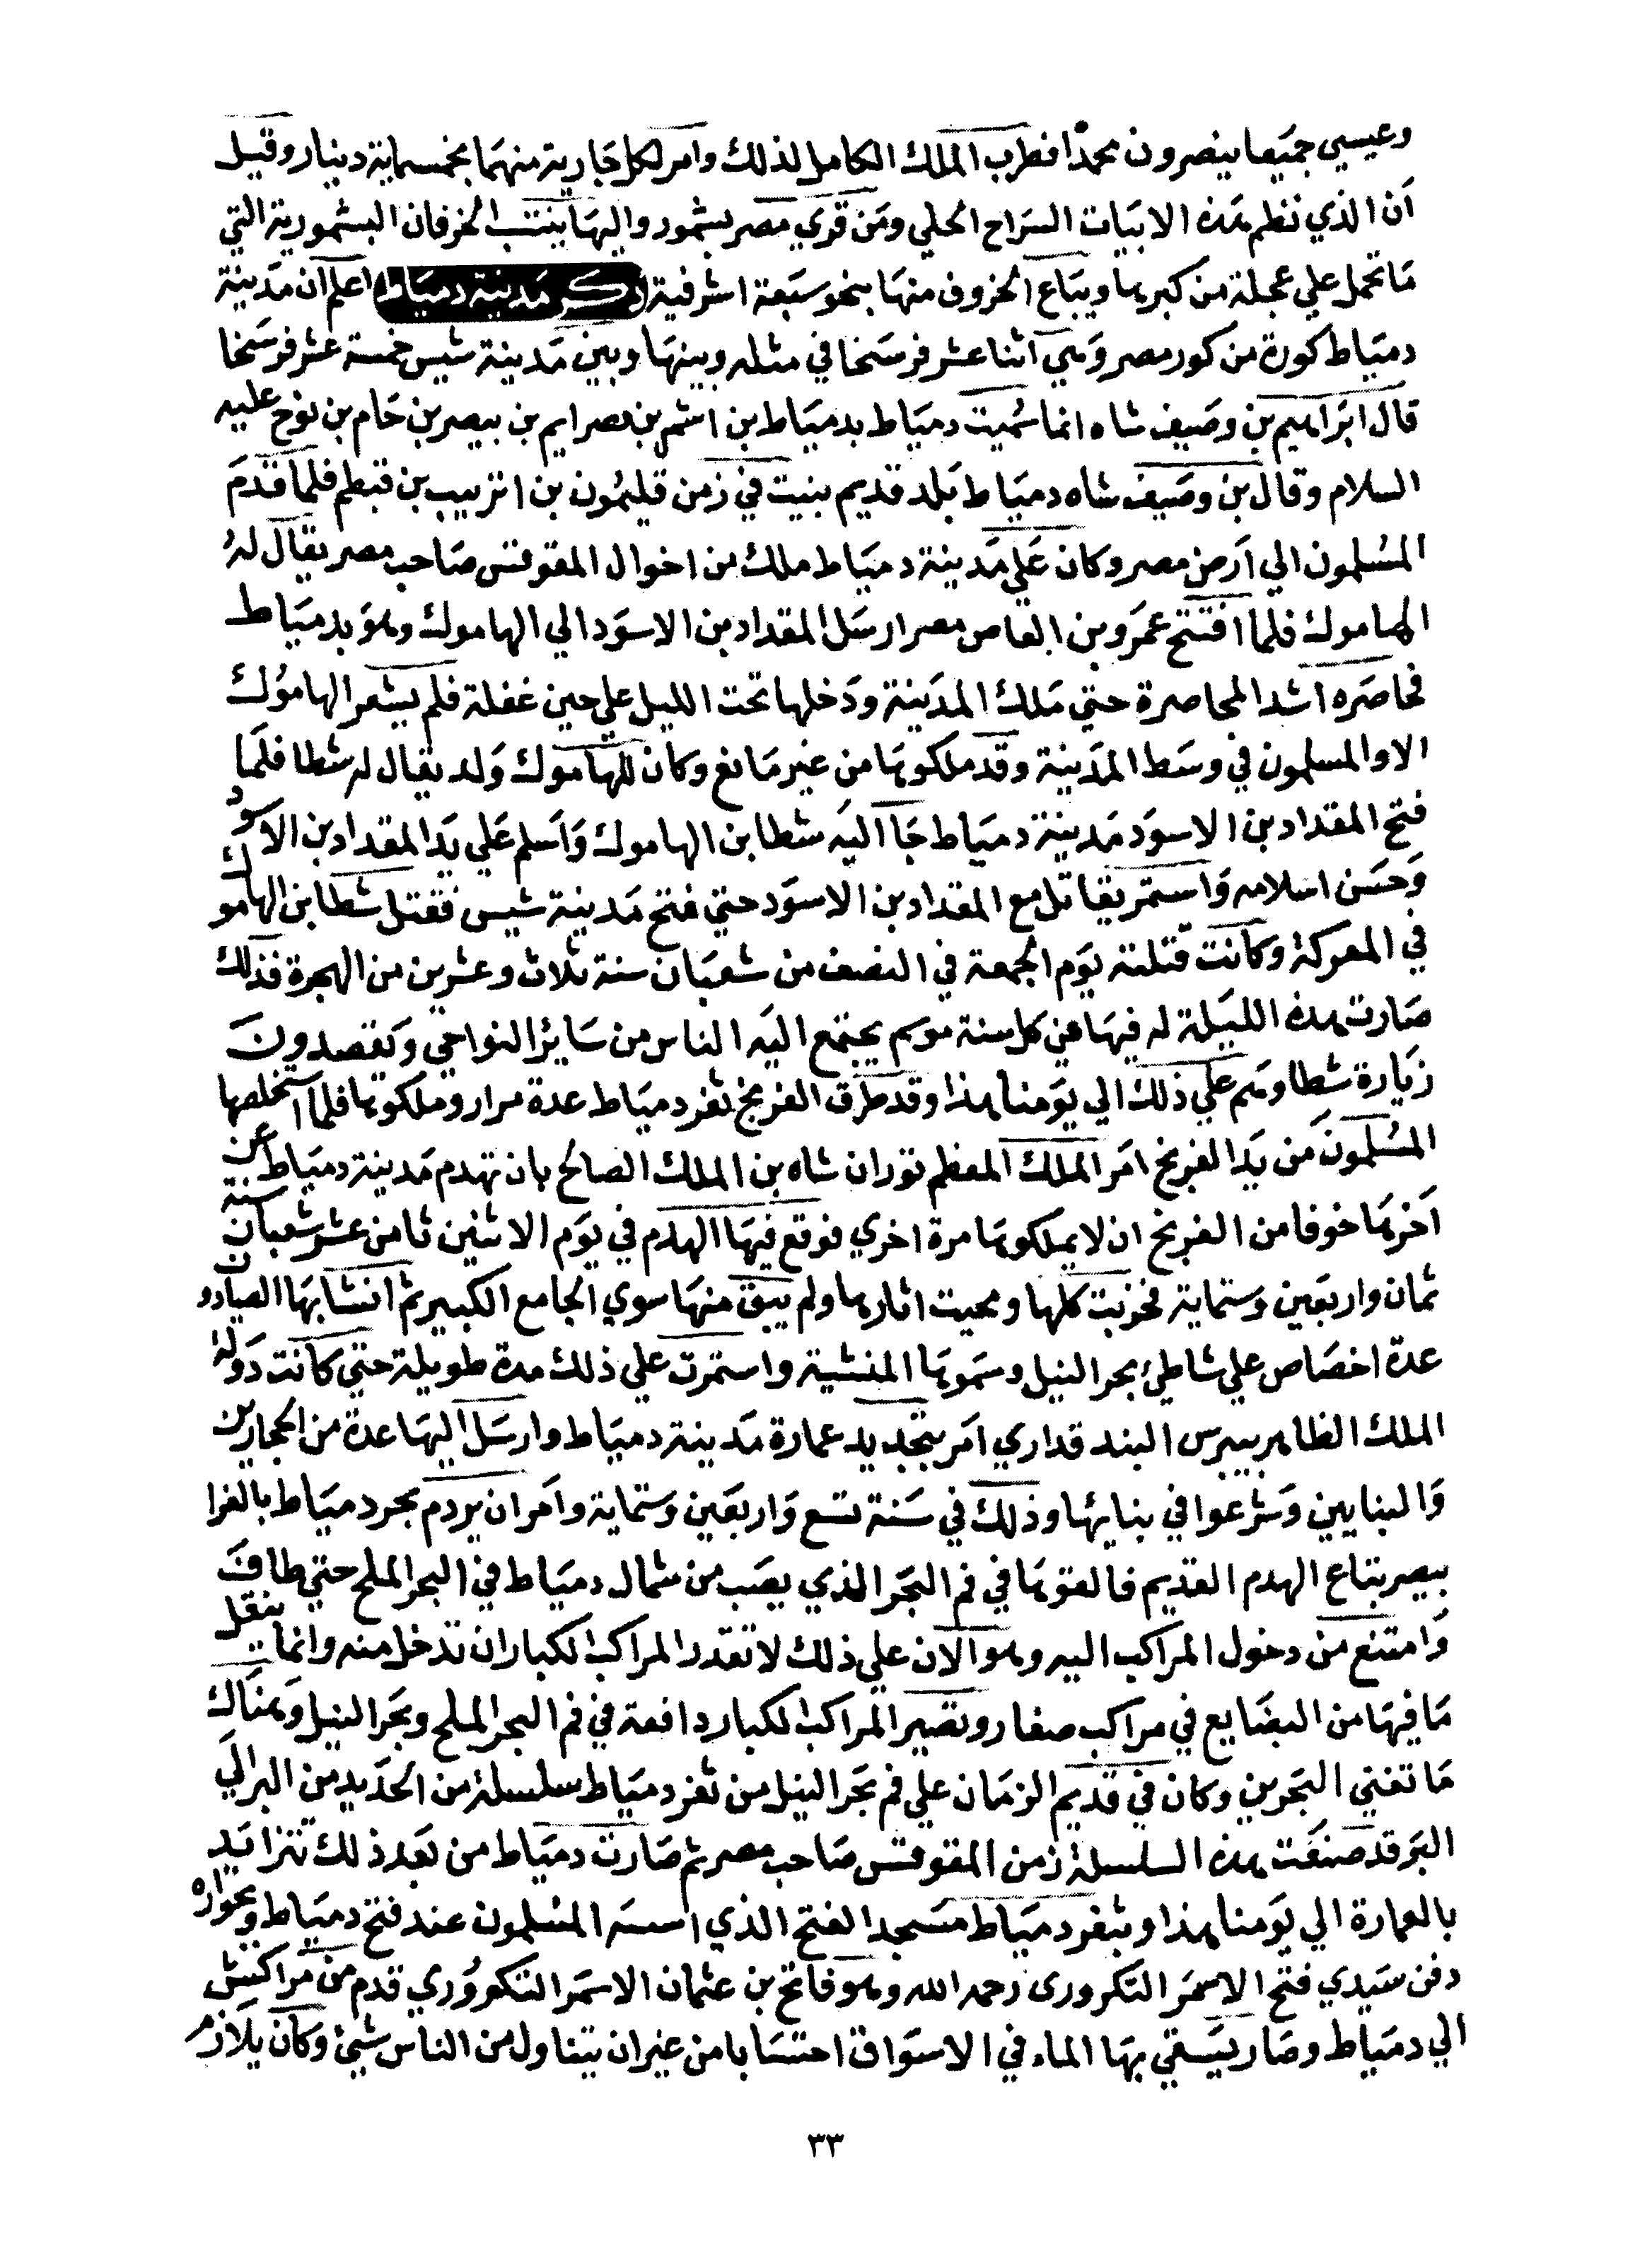 وعيسي جميعا ينصرون محمدا فطرب الملك الكامل لذلك وامر لكل جارية منهما بخمسماية دينار وقيل
ان الذي نظم هذه الابيات السراج الحلي ومن قري مصر بشمور واليها ينتسب الخرفان البشمورية التي
ما تحمل علي عجلة من كبرها ويباع الخروف منها بنحو سبعة اشرفية ذكر مدينة دمياط اعلم ان مدينة
دمياط كورة من كور مصر وهي اثنا عشر فرسخا في مثله وبينها وبين مدينة شيس خمسة عشر فرسخا
قال ابراهيم بن وصيف شاه انما سميت دمياط بدمياط بن اشم بن مصرايم بن بيصر بن حام بن نوح عليه
السلام وقال بن وصيف شاه دمياط بلد قديم بنيت في زمن قليمون بن اتريب بن قبطم فلما قدم
المسلمون الي ارض مصر وكان علي مدينة دمياط ملك من اخوال المقوقس صاحب مصر يقال له
الهاموك فلما افتتح عمرو بن العاص مصر ارسل المقداد بن الاسود الي الهاموك وهو بدمياط
فحاصره اشد المحاصرة حتي ملك المدينة ودخلها تحت الليل علي حين غفلة فلم يشعر الهاموك
الا والمسلمون في وسط المدينة وقد ملكوها من غير مانع وكان للهاموك ولد يقال له شطا فلما
فتح المقداد بن الاسود مدينة دمياط جا اليه شطا بن الهاموك واسلم علي يد المقداد بن الاسود
وحسن اسلامه واستمر يقاتل مع المقداد بن الاسود حتي فتح مدينة شيس فقتل شطا بن الهاموك
في المعركة وكانت قتلته يوم الجمعة في النصف من شعبان سنة ثلاث وعشرين من الهجرة فذلك
صارت هذه الليلة له فيها في كل سنة موسم يجتمع اليه الناس من ساير النواحي ويقصدون
زيارة شطا وهم علي ذلك الي يومنا هذا وقد طرق الفرنج ثغر دمياط عدة مرار وملكوها فلما استخلصها
المسلمون من يد الفرنج امر الملك المعظم توران شاه بن الملك الصالح بان تهدم مدينة دمياط عن
اخرها خوفا من الفرنج ان لا يملكوها مرة اخري فوقع فيها الهدم في يوم الاثنين ثامن عشر شعبان سنة
ثمان واربعين وستماية فخربت كلها ومحيت اثارها ولم يبق منها سوي الجامع الكبير ثم انشا بها الصيادون
عدة اخصاص علي شاطئ بحر النيل وسموها المنشية واستمرت علي ذلك مدة طويلة حتي كانت دولة
الملك الظاهر بيبرس البندقداري امر بتجديد عمارة مدينة دمياط وارسل اليها عدة من الحجارين
والبنايين وشرعوا في بنائها وذلك في سنة تسع واربعين وستماية وامر ان يردم بحر دمياط بالقرا
بيصر بتاع الهدم القديم فالقوها في فم البحر الذي يصب من شمال دمياط في البحر الملح حتي طاف
وامتنع من دخول المراكب اليه وهو الان علي ذلك لا تقدر المراكب الكبار ان تدخل منه وانما ينقل
ما فيها من البضايع في مراكب صغار وتصير المراكب الكبار دافعة في فم البحر الملح وبحر النيل وهناك
ما تغني البحرين وكان في قديم الزمان علي فم بحر النيل من ثغر دمياط سلسلة من الحديد من البر الي
البر قد صنعت هذه السلسلة زمن المقوقس صاحب مصر ثم صارت دمياط من بعد ذلك تتزايد
بالعمارة الي يومنا هذا وبثغر دمياط مسجد الفتح الذي اسسه المسلمون عند فتح دمياط وبجواره
دفن سيدي فتح الاسمر التكرورى رحمه الله وهو فاتح بن عثمان الاسمر التكروري قدم من مراكش
الي دمياط وصار يسقي بها الماء في الاسواق احتسابا من غير ان يتناول من الناس شئ وكان يلازم
٣٣